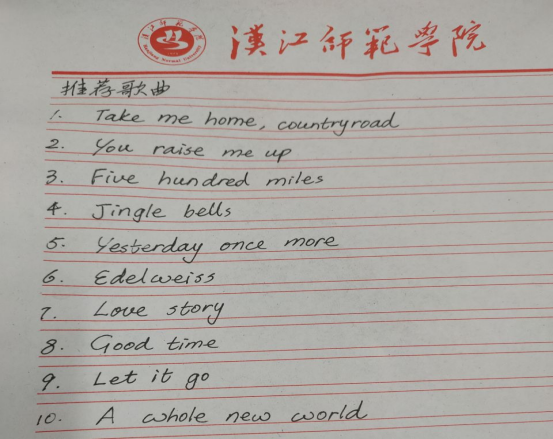 漢江師範學院
推荐歌曲
1. Take me home, countryroad
2. You raise me up
3. Five hundred miles
4. Jingle bells
5. Yesterday once more
6. Edelweiss
7. Love story
8. Good time
9. Let it go
10. A whole new world